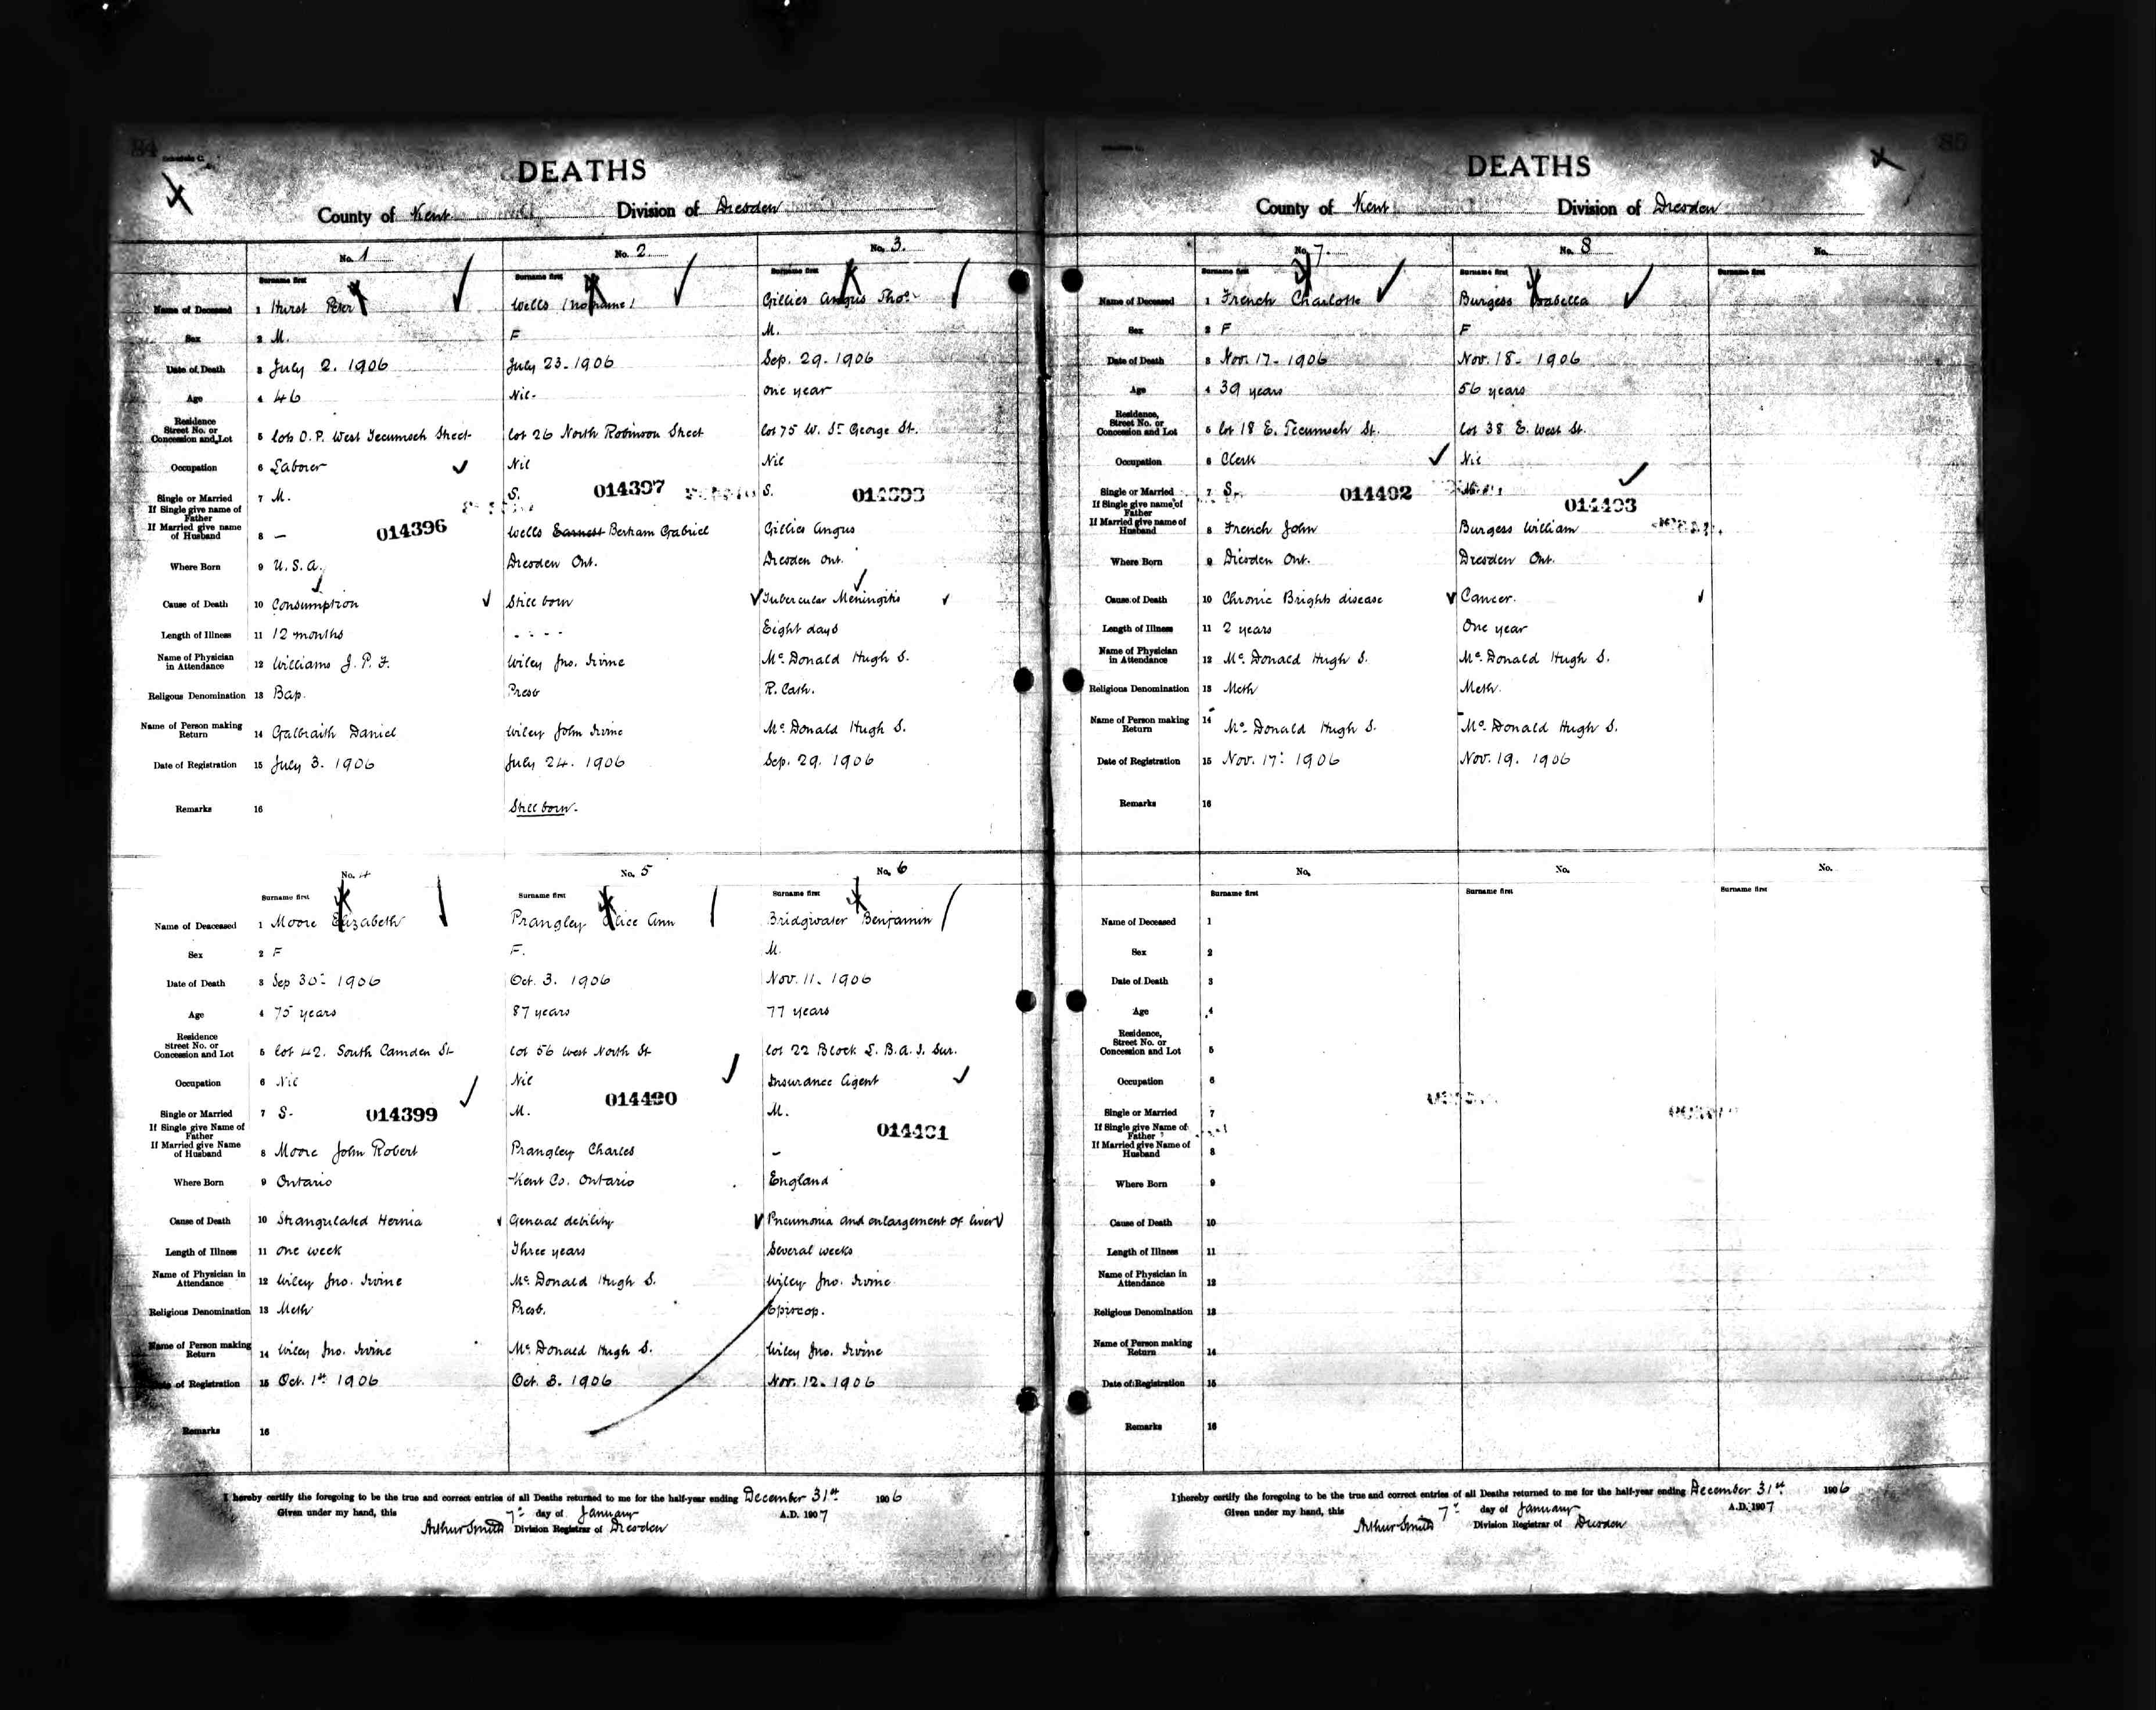 84
Schedule C.
DEATHS
County of Kent Division of Dresden
No. 1 No. 2 No. 3.
Surname first Surname first Surname first
Name of Deceased 1 Hurst Peter Wells (no name) Gillies Angus Thos
Sex 2 M. F M.
Date of Death 3 July 2. 1906 July 23. 1906 Sep. 29. 1906
Age 4 46 Nil. one year
Residence
Street No. or
Concession and Lot 5 lots O.P. West Tecumseh Street lot 26 North Robinson Street lot 75 W. St George St.
Occupation 6 Laborer Nil Nil
Single or Married 7 M. S. 014397 S. 014398
If Single give name of
Father
If Married give name
of Husband 8 — 014396 Wells Earnest Bertram Gabriel Gillies Angus
Where Born 9 U.S.A. Dresden Ont. Dresden Ont.
Cause of Death 10 Consumption Still born Tubercular Meningitis
Length of Illness 11 12 months - - - - Eight days
Name of Physician
in Attendance 12 Williams J. P. F. Wiley Jno. Irvine Mc Donald Hugh S.
Religous Denomination 13 Bap. Presb R. Cath.
Name of Person making
Return 14 Galbraith Daniel Wiley John Irvine Mc Donald Hugh S.
Date of Registration 15 July 3. 1906 July 24. 1906 Sep. 29. 1906
Remarks 16 Still born.
No. 4 No. 5 No. 6
Surname first Surname first Surname first
Name of Deaceased 1 Moore Elizabeth Prangley Alice Ann Bridgwater Benjamin
Sex 2 F F. M.
Date of Death 3 Sep 30th 1906 Oct. 3. 1906 Nov. 11. 1906
Age 4 75 years 87 years 77 years
Residence
Street No. or
Concession and Lot 5 lot 42. South Camden St lot 56 West North St lot 22 Block L. B.a.S. Sur.
Occupation 6 Nil Nil Insurance Agent
Single or Married 7 S. 014399 M. 014400 M.
If Single give Name of
Father
If Married give Name
of Husband 8 Moore John Robert Prangley Charles — 014401
Where Born 9 Ontario Kent Co. Ontario England
Cause of Death 10 Strangulated Hernia General debility Pneumonia and enlargement of liver
Length of Illness 11 one week Three years Several weeks
Name of Physician in
Attendance 12 Wiley Jno. Irvine Mc Donald Hugh S. Wiley Jno. Irvine
Religious Denomination 13 Meth Presb. Episcop.
Name of Person making
Return 14 Wiley Jno. Irvine Mc Donald Hugh S. Wiley Jno. Irvine
Date of Registration 15 Oct. 1st 1906 Oct. 3. 1906 Nov. 12. 1906
Remarks 16
I hereby certify the foregoing to be the true and correct entries of all Deaths returned to me for the half-year ending December 31st 1906
Given under my hand, this 7th day of January A.D. 1907
Arthur Smith Division Registrar of Dresden
85
DEATHS
County of Kent Division of Dresden
No. 7. No. 8 No.
Surname first Surname first Surname first
Name of Deceased 1 French Charlotte Burgess Isabella
Sex 2 F F
Date of Death 3 Nov. 17. 1906 Nov. 18. 1906
Age 4 39 years 56 years
Residence,
Street No. or
Concession and Lot 5 lot 18 E. Tecumseh St. lot 38 E. West St.
Occupation 6 Clerk Nil
Single or Married 7 S. 014402 M. 014403
If Single give name of
Father
If Married give name of
Husband 8 French John Burgess William
Where Born 9 Dresden Ont. Dresden Ont.
Cause of Death 10 Chronic Brights disease Cancer.
Length of Illness 11 2 years One year
Name of Physician
in Attendance 12 Mc. Donald Hugh S. Mc. Donald Hugh S.
Religious Denomination 13 Meth Meth.
Name of Person making
Return 14 Mc. Donald Hugh S. Mc. Donald Hugh S.
Date of Registration 15 Nov. 17th 1906 Nov. 19. 1906
Remarks 16
No. No. No.
Surname first Surname first Surname first
Name of Deceased 1
Sex 2
Date of Death 3
Age 4
Residence,
Street No. or
Concession and Lot 5
Occupation 6
Single or Married 7
If Single give Name of
Father
If Married give Name of
Husband 8
Where Born 9
Cause of Death 10
Length of Illness 11
Name of Physician in
Attendance 12
Religious Denomination 13
Name of Person making
Return 14
Date of Registration 15
Remarks 16
I hereby certify the foregoing to be the true and correct entries of all Deaths returned to me for the half-year ending December 31st 1906
Given under my hand, this 7th day of January A.D. 1907
Arthur Smith Division Registrar of Dresden